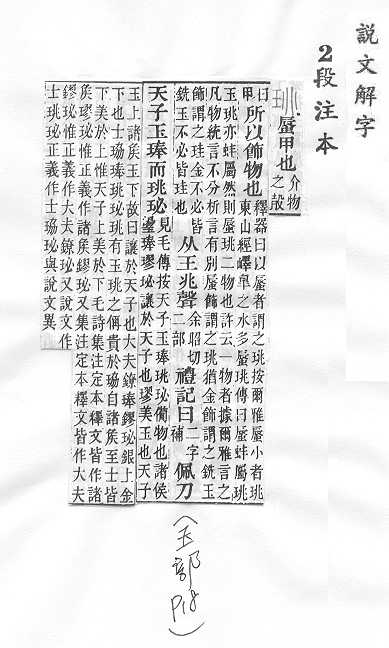 說文解字
2段注本
珧 蜃甲也 介物之殼
曰甲 所以飾物也 釋器曰以蜃者謂之珧按爾雅蜃小者珧
東山經嶧皋之水多蜃珧傳曰蜃蚌屬珧
玉珧亦蚌屬然則蜃珧二物也許云一物者據爾雅言之
凡物統言不分析言有別蜃飾謂之珧猶金飾謂之銑玉
飾謂之珪金不必皆
銑玉不必皆珪也 从王兆聲 余昭切二部 禮記曰 二字補 佩刀
天子玉琫而珧珌 見毛傳按天子玉琫珧珌備物也諸侯
璗琫璆珌讓於天子也璆美玉也天子
玉上諸矦玉下故曰讓於天子也大夫鐐琫鏐珌銀上金
下也士珕琫珧珌珧有玉珧之偁貴於珕自諸矦至士皆
下美於上惟天子上美於下毛詩集注定本釋文皆作諸
矦璆珌惟正義作諸矦鏐珌又集注定本釋文皆作大夫
鏐珌惟正義作大夫鐐珌又說文作
士珧珌正義作士珕珌與說文異
(玉部 P18)